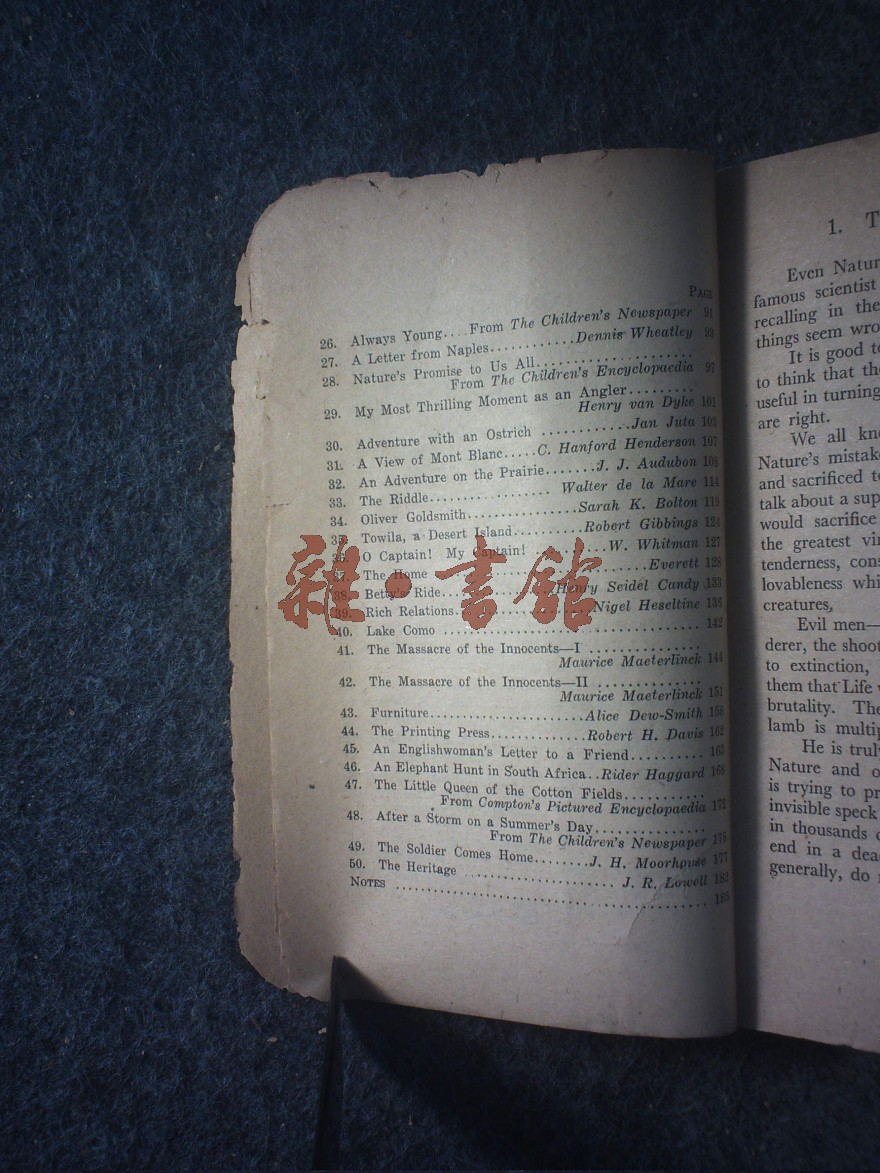 PAGE
26. Always Young....From The Children's Newspaper 91
27. A Letter from Naples............Dennis Wheatley 93
28. Nature's Promise to Us All......................
From The Children's Encyclopaedia 97
29. My Most Thrilling Moment as an Angler.........
Henry van Dyke 101
30. Adventure with an Ostrich ............Jan Juta 103
31. A View of Mont Blanc.....C. Hanford Henderson 107
32. An Adventure on the Prairie.......J. J. Audubon 108
33. The Riddle................ Walter de la Mare 114
34. Oliver Goldsmith...............Sarah K. Bolton 119
35. Towila, a Desert Island..........Robert Gibbings 124
36. O Captain! My Captain! ...........W. Whitman 127
37. The Home ..........................Everett 128
38. Betty's Ride...............Henry Seidel Candy 133
39. Rich Relations...................Nigel Heseltine 136
40. Lake Como .................................. 142
41. The Massacre of the Innocents—I ...............
Maurice Maeterlinck 144
42. The Massacre of the Innocents—II ..............
Maurice Maeterlinck 151
43. Furniture.......................Alice Dew-Smith 158
44. The Printing Press..............Robert H. Davis 162
45. An Englishwoman's Letter to a Friend.......... 163
46. An Elephant Hunt in South Africa..Rider Haggard 168
47. The Little Queen of the Cotton Fields............
From Compton's Pictured Encyclopaedia 172
48. After a Storm on a Summer's Day................
From The Children's Newspaper 175
49. The Soldier Comes Home........J. H. Moorhouse 177
50. The Heritage ......................J. R. Lowell 183
NOTES .............................................. 185
雜·書館
1. T
Even Natur
famous scientist
recalling in the
things seem wro
It is good to
to think that the
useful in turning
are right.
We all kno
Nature's mistake
and sacrificed to
talk about a sup
would sacrifice
the greatest vir
tenderness, cons
lovableness whi
creatures,
Evil men—
derer, the shoot
to extinction,
them that Life
brutality. The
lamb is multip
He is trul
Nature and o
is trying to pr
invisible speck
in thousands o
end in a dea
generally, do